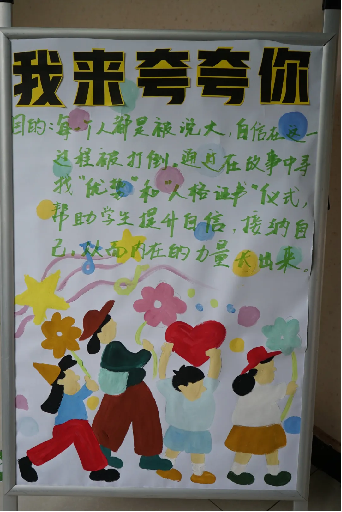 我来夸夸你
目的:每个人都是被说大,自信在这一
过程被打倒。通过在故事中寻
找"优势"和"人格证书"仪式,
帮助学生提升自信,接纳自
己,从而内在的力量长出来。